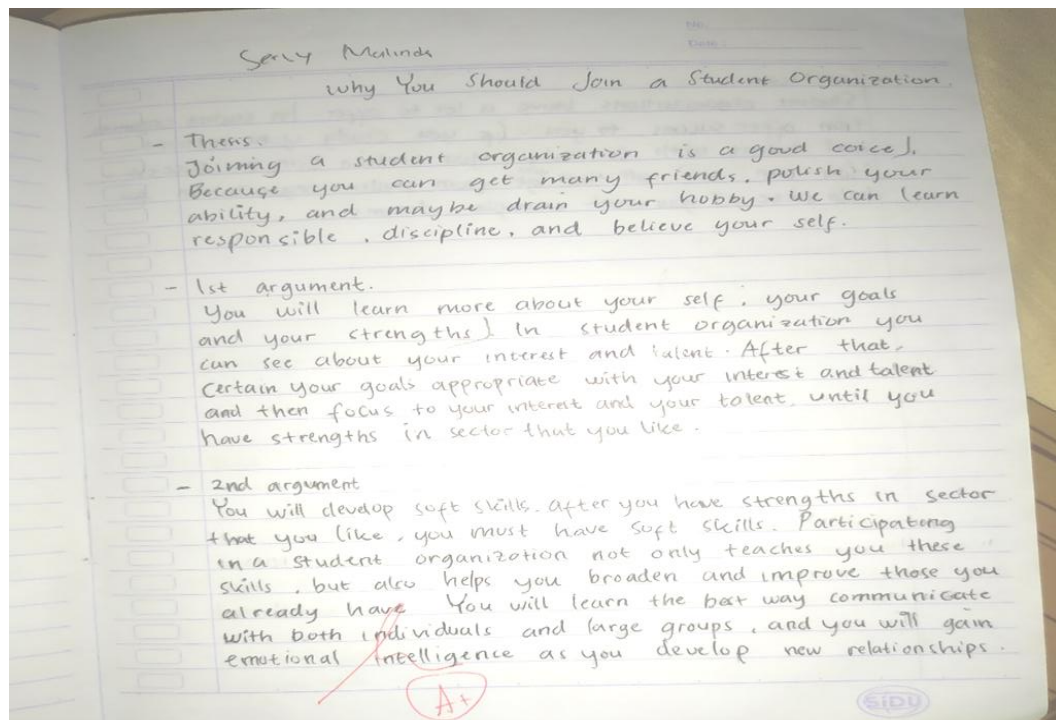 No:
Date:
Serly Malinda
Why You Should Join a Student Organization
- Thesis.
Joining a student organization is a good coice).
Because you can get many friends, polish your
ability, and maybe drain your hobby. We can learn
responsible, discipline, and believe your self.
- 1st argument.
You will learn more about your self, your goals
and your strengths) In student organization you
can see about your interest and talent. After that,
certain your goals appropriate with your interest and talent
and then focus to your interest and your talent until you
have strengths in sector that you like.
- 2nd argument
You will develop soft skills. after you have strengths in sector
that you like, you must have soft skills. Participating
in a student organization not only teaches you these
skills, but also helps you broaden and improve those you
already have You will learn the best way communicate
with both individuals and large groups, and you will gain
emotional intelligence as you develop new relationships.
A+
SIDU